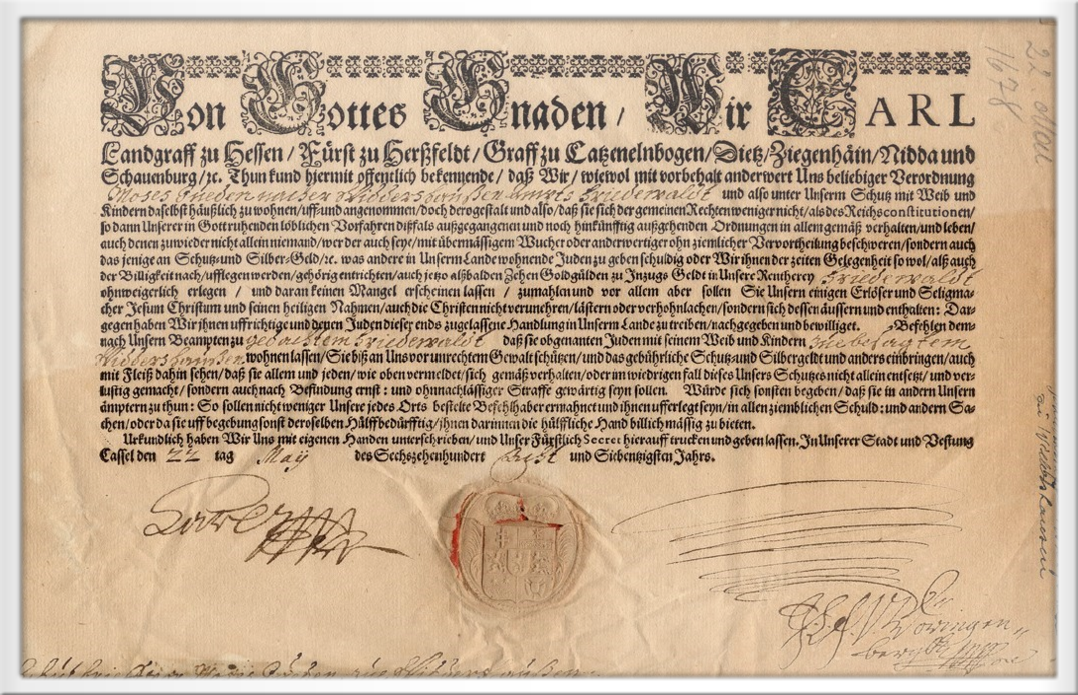 Von Gottes Gnaden / Wir CARL
Landgraff zu Hessen / Fürst zu Herßfeldt / Graff zu Catzenelnbogen / Dietz / Ziegenhäin / Nidda und
Schauenburg / ꝛc. Thun kund hiermit offentlich bekennende / daß Wir / wiewol mit vorbehalt anderwert Uns beliebiger Verordnung
Moses Amts Friedewaldt und also unter Unserm Schutz mit Weib und
Kindern daselbst häußlich zu wohnen / uff- und angenommen / doch dero gestalt und also / daß sie sich der gemeinen Rechten weniger nicht / als des Reichs constitutionen /
so dann Unserer in Gott ruhenden löblichen Vorfahren dißfals außgegangenen und noch hinkünfftig außgehenden Ordnungen in allem gemäß verhalten / und leben /
auch denen zuwieder nicht allein niemand / wer der auch seye / mit übermässigem Wucher oder anderwertiger ohnziemlicher Vervortheilung beschweren / sondern auch
das jenige an Schutz- und Silber-Geld / ꝛc. was andere in Unserm Lande wohnende Juden zu geben schuldig oder Wir ihnen der zeiten Gelegenheit so wol / alß auch
der Billigkeit nach / ufflegen werden / gehörig entrichten / auch jetzo alßbalden Zehen Goldgülden zu Inzugs Geldt in Unsere Rentherey Friedewaldt
ohnweigerlich erlegen / und daran keinen Mangel erscheinen lassen / zumahlen und vor allem aber sollen Sie Unsern einigen Erlöser und Seligma-
cher Jesum Christum und seinen heiligen Nahmen / auch die Christen nicht verunehren / lästern oder verhohnlachen / sondern sich dessen äussern und enthalten: Dar-
gegen haben Wir ihnen uffrichtige und denen Juden dieser ends zugelassene Handlung in Unserm Lande zu treiben / nachgegeben und bewilliget. Befehlen dem-
nach Unsern Beampten zu gedachtem Friedewaldt daß sie obgenanten Juden mit seinem Weib und Kindern in besagtem
Widdershaußen wohnen lassen / Sie biß an Uns vor unrechtem Gewalt schützen / und das gebührliche Schutz- und Silbergeldt und anders einbringen / auch
mit Fleiß dahin sehen / daß sie allem und jeden / wie oben vermeldet / sich gemäß verhalten / oder im wiedrigen fall dieses Unsers Schutzes nicht allein entsetzt / und ver-
lustig gemacht / sondern auch nach Befindung ernst: und ohnnachlässiger Straffe gewärtig seyn sollen. Würde sich sonsten begeben / daß sie in andern Unsern
ämptern zu thun: So sollen nicht weniger Unsere jedes Orts bestelte Befehlhaber ermahnet und ihnen ufferlegt seyn / in allen ziemblichen Schuld: und andern Sa-
chen / oder da sie uff begebung sonst derselben Hülff bedürfftig / ihnen darinnen die hülffliche Hand billichmässig zu bieten.
Urkundlich haben Wir Uns mit eigenen Handen unterschrieben / und Unser Fürstlich Secret hierauff trucken und geben lassen. In Unserer Stadt und Vestung
Cassel den 22 tag Maij des Sechszehenhundert und Siebentzigsten Jahrs.
22. Mai
1678